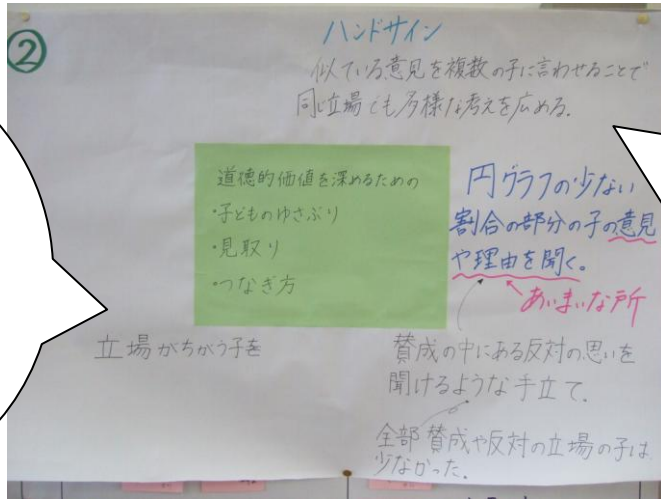 ②
ハンドサイン
似ている意見を複数の子に言わせることで
同じ立場でも多様な考えを広める。
道徳的価値を深めるための
・子どものゆさぶり
・見取り
・つなぎ方
円グラフの少ない
割合の部分の子の意見
や理由を聞く。
あいまいな所
立場がちがう子を
賛成の中にある反対の思いを
聞けるような手立て。
全部賛成や反対の立場の子は
少なかった。